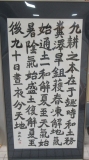 凡耕之本在于趣時和土務
糞澤早鋤穫春凍解地氣
始通土一和解夏至天氣始
暑陰氣始盛土復解夏至
後九十日晝夜分天地